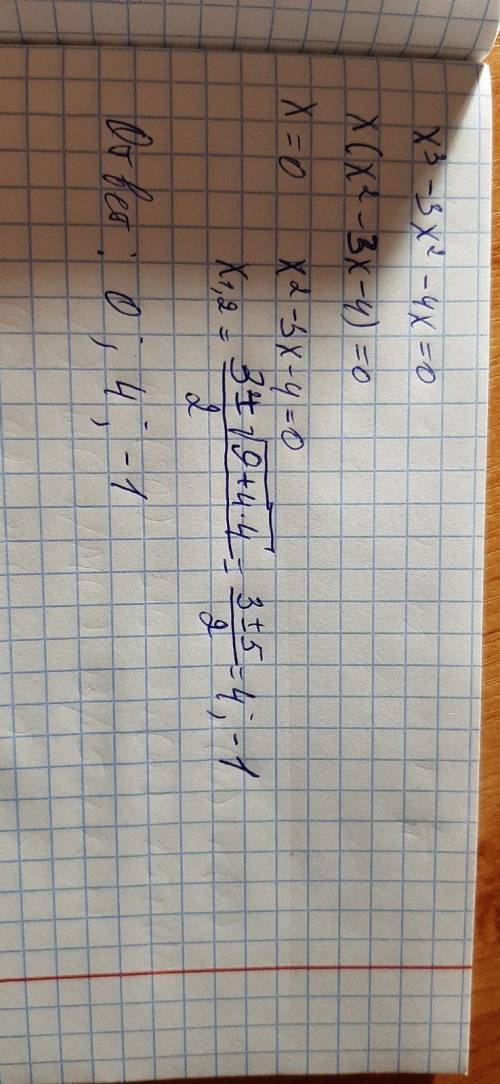 x³ - 3x² - 4x = 0
x(x² - 3x - 4) = 0
x = 0 x² - 3x - 4 = 0
x₁,₂ = (3 ± √(9 + 4·4))/2 = (3 ± 5)/2 = 4; -1
Ответ: 0; 4; -1